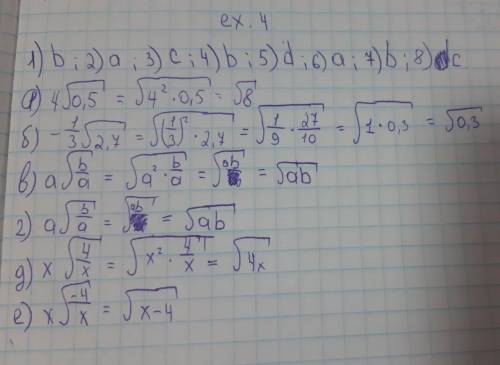 ex. 4
1) b ; 2) a ; 3) c ; 4) b ; 5) d ; 6) a ; 7) b ; 8) c
а) 4√0,5 = √4² · 0,5 = √8
б) -1/3√2,7 = √(1/3)² · 2,7 = √1/9 · 27/10 = √1 · 0,3 = √0,3
в) a√b/a = √a² · b/a = √ab = √ab
г) a√b/a = √ab = √ab
д) x√4/x = √x² · 4/x = √4x
е) x√-4/x = √x-4